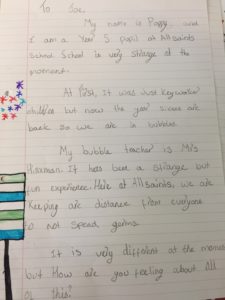 To Joe,
My name is Poppy and
I am a Year 5 pupil at Allsaints
School. School is very strange at the
moment.
At first, it was Just Keyworker
children but now the year sixes are
back so we are in bubbles.
My bubble teacher is Mrs
It has been a strange but
fun experience. Here at Allsaints, we are
Keeping are distance from everyone
to not spread germs.
It is very different at the moment
but How are you feeling about all
of this?